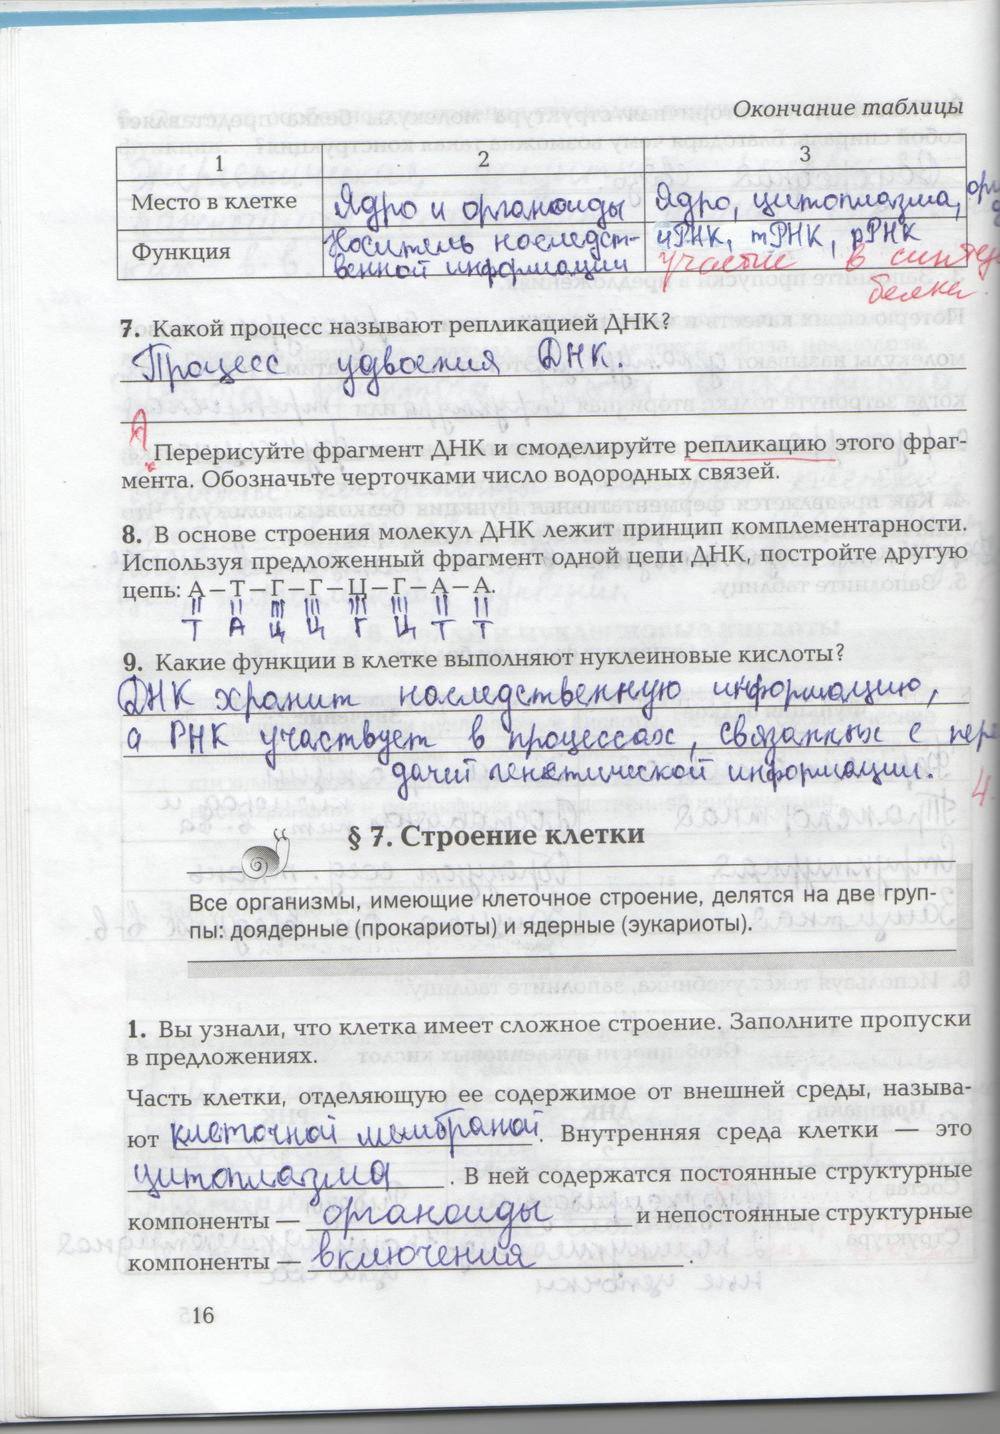 Окончание таблицы
1 2 3
Место в клетке Ядро и органоиды Ядро, цитоплазма,
Функция Носитель наследст-
венной информации
иРНК, тРНК, рРНК
участие в синтезе
белка
7. Какой процесс называют репликацией ДНК?
Процесс удвоения ДНК.
Перерисуйте фрагмент ДНК и смоделируйте репликацию этого фраг-
мента. Обозначьте черточками число водородных связей.
8. В основе строения молекул ДНК лежит принцип комплементарности.
Используя предложенный фрагмент одной цепи ДНК, постройте другую
цепь: А – Т – Г – Г – Ц – Г – А – А.
Т А Ц Ц Г Ц Т Т
9. Какие функции в клетке выполняют нуклеиновые кислоты?
ДНК хранит наследственную информацию,
а РНК участвует в процессах, связанных с пере
дачей генетической информации.
4
§ 7. Строение клетки
Все организмы, имеющие клеточное строение, делятся на две груп-
пы: доядерные (прокариоты) и ядерные (эукариоты).
1. Вы узнали, что клетка имеет сложное строение. Заполните пропуски
в предложениях.
Часть клетки, отделяющую ее содержимое от внешней среды, называ-
ют клеточной мембраной. Внутренняя среда клетки — это
цитоплазма. В ней содержатся постоянные структурные
компоненты — органоиды и непостоянные структурные
компоненты — включения.
16